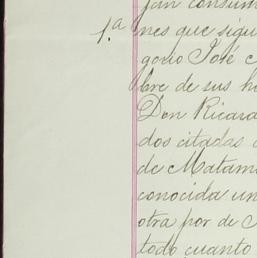 jan consum
1.a nes que sigu
gorio José
bre de sus h
Don Ricard
dos citadas
de Matam
conocida un
otra por de
todo cuanto